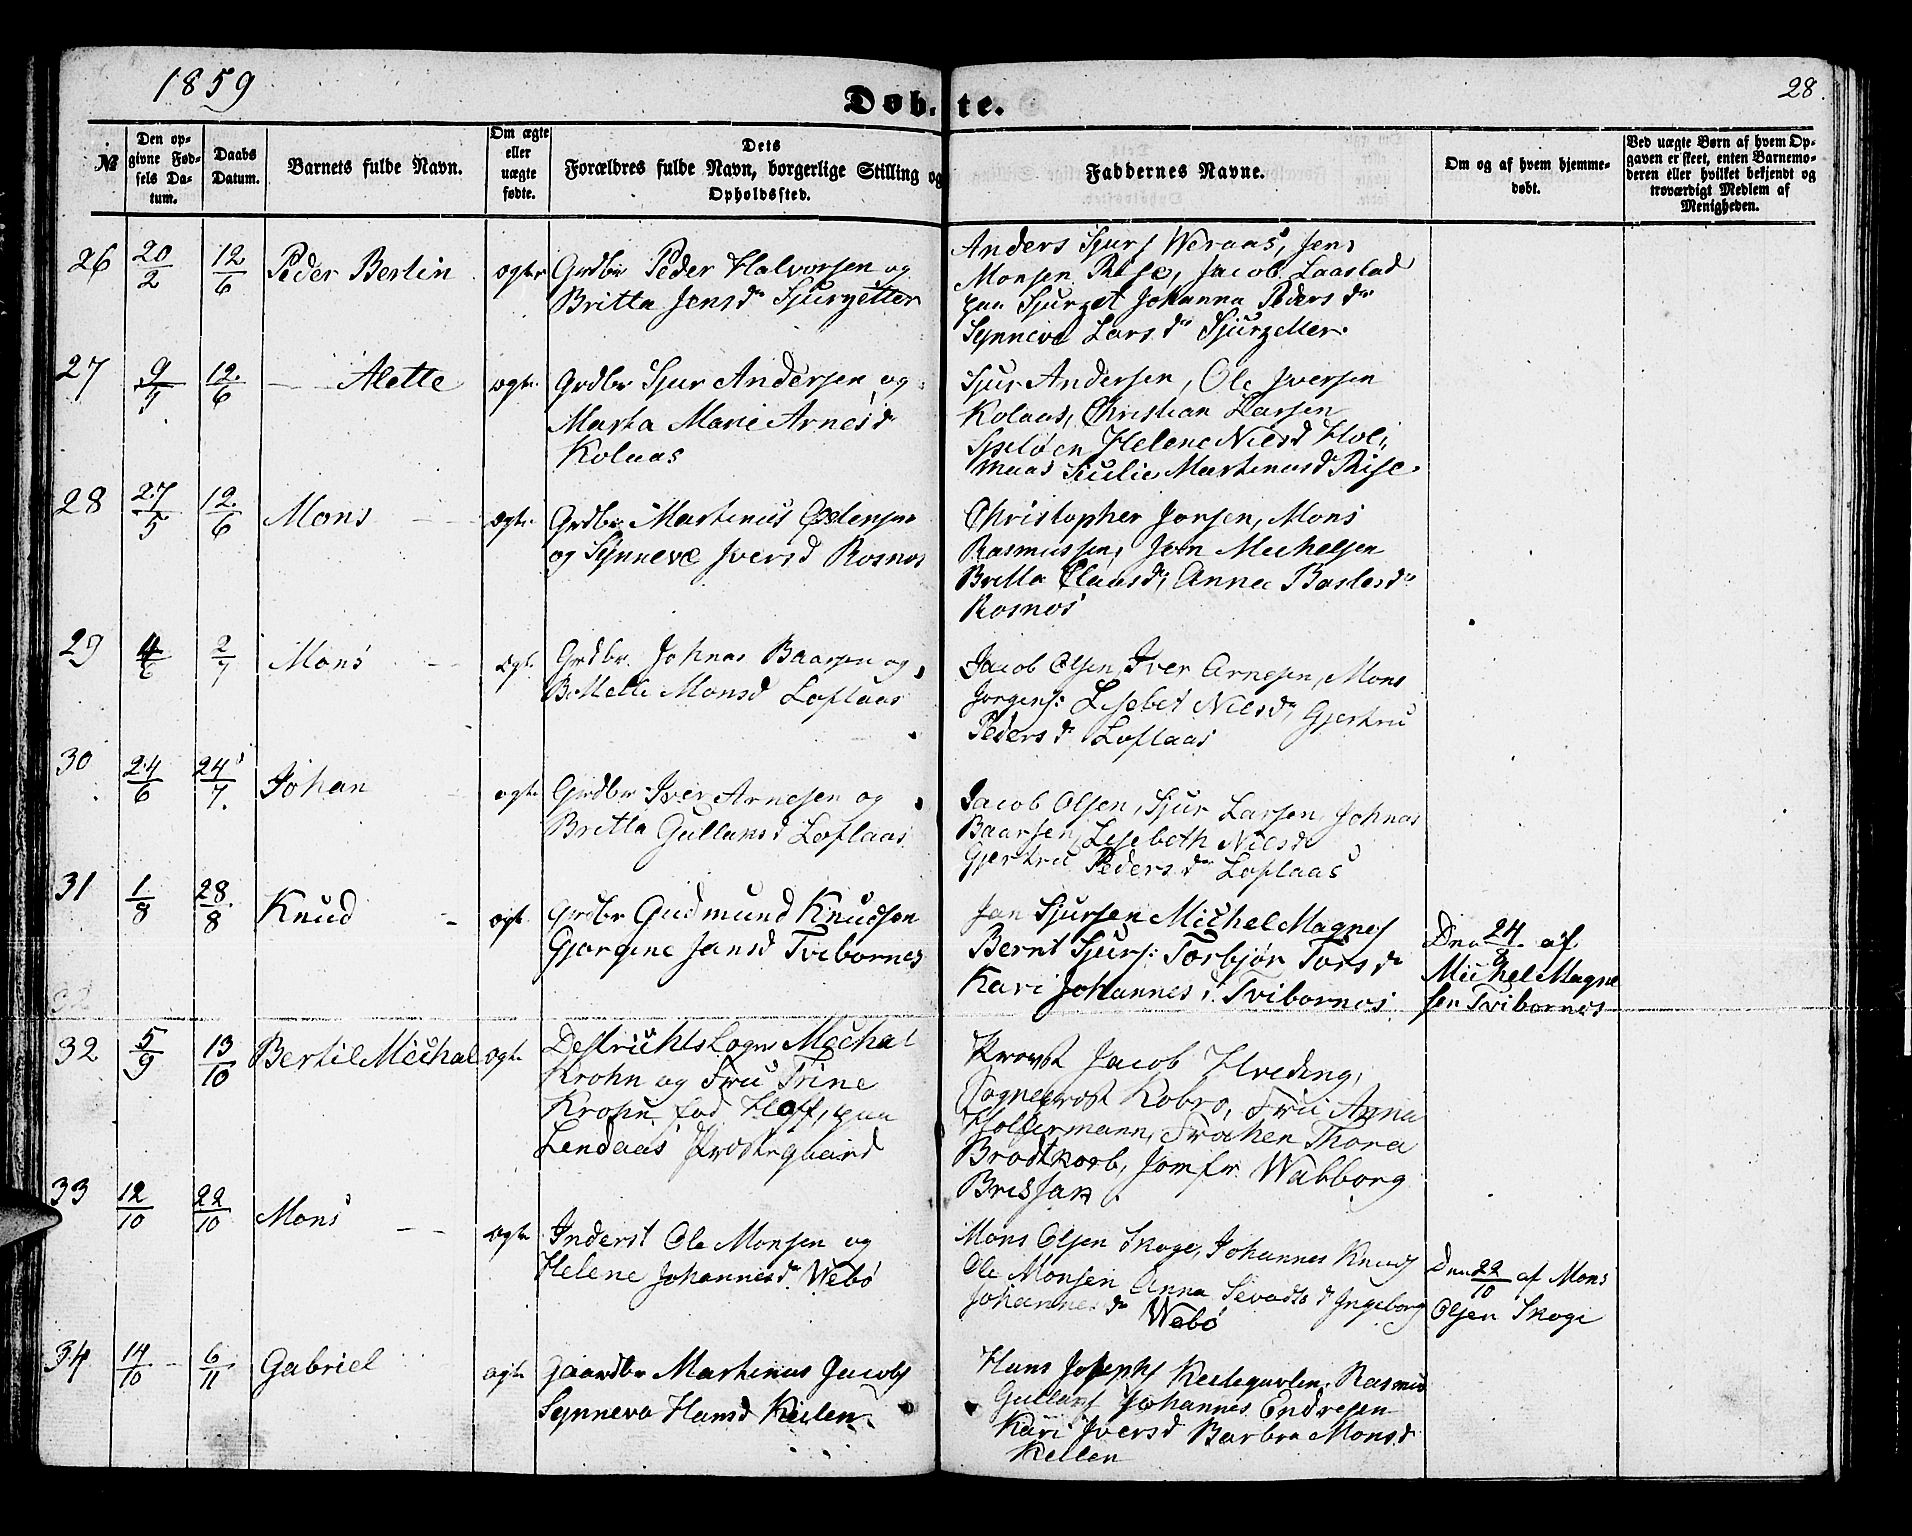 1859
Døbte.
28.
№
Den opgivne Fødsels Datum.
Daabs Datum.
Barnets fulde Navn.
Om ægte eller uægte fødte.
Dets Forældres fulde Navn, borgerlige Stilling og Opholdssted.
Faddernes Navne.
Om og af hvem hjemmedøbt.
Ved uægte Børn af hvem Opgaven er skeet, enten Barnemoderen eller hvilket bekjendt og troværdigt Medlem af Menigheden.
26 20/2 12/6 Peder Bertin ægte Grdbr Peder Halvorsen og
Britta Jensd. Sjurzetter
Anders Sjurs Weraas, Jens
Monsen Rise, Jacob Laastad
paa Sjurzet Johanna Pedersdr
Synneve Larsdr Sjurzetter.
27 9/5 12/6 Alette ægte Grdbr Sjur Andersen og
Marta Marie Arnesd
Kolaas
Sjur Andersen, Ole Iversen
Kolaas, Christian Larsen
Helene Nilsd Hol:
maas Martinusd Rise.
28 27/5 12/6 Mons ægte Grdbr. Martinus Ostensen
og Synneve Iversd Rosnos
Christopher Jonsen, Mons
Rasmussen, Jon Michelsen
Britta Claasdr, Anna
Rosnos
29 4/6 2/7 Mons ægte Grdbr. Johnas Baarsen og
B. Mette Monsd Loflaas
Jacob Olsen, Iver Arnesen, Mons
Jorgens: Lisebet Nilsdr, Gjertru
Pedersd Loflaas
30 24/6 24/7 Johan ægte Grdbr Iver Arnesen og
Britta Gullaksd Loflaas
Jacob Olsen, Sjur Larsen, Johnas
Baarsen, Lisebeth Nilsd
Gjertru Pedersdr Loflaas
31 1/8 28/8 Knud ægt. Grdbr Gudmund Knudsen
Gjorgine Jansd Tvibornes
Jan Sjursen Michel Magnes
Bernt Sjurs: Torbjør Torsd
Kari Johannesd. Tvibornes
Den 24/8 af
Michel Magne
sen Tvibornes
32 5/9 13/10 Bertil Michal ægte Michal
Krohn og Fru Trine
Krohn fød Hoff, paa
Lendaas Prostegaard
Provst Jacob Hveding,
Kobro, Fru Anna
Frøken Thora
Brodtkorb, Jomfr. Walborg
33 12/10 22/10 Mons ægte Inderst Ole Monsen og
Helene Johannesdr Webø
Mons Olsen Skoge, Johannes Knuds
Ole Monsen Anna Ingeborg
Johannesdr Webø
Den 22/10 af Mons
Olsen Skoge
34 14/10 6/11 Gabriel ægte Gaardbr Martinus Jacobs
Synneva Hansd Keilen
Hans Josephs Rasmus
Gullars Johannes Endresen
Kari Iversd Barbra Monsd
Keilen